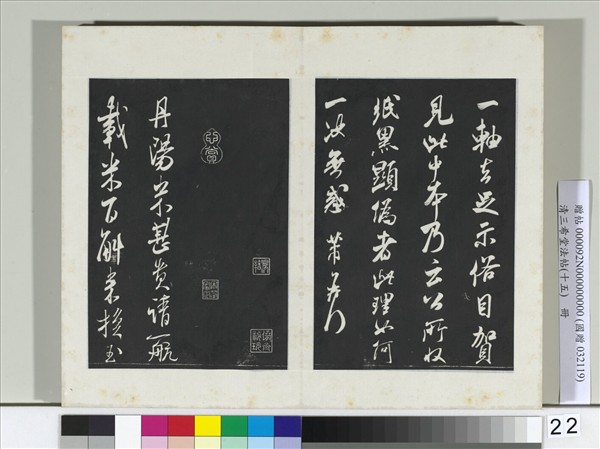 一軸去足示俗目賀
見此中本乃云公所收
紙黑顯偽者此理如何
一決無惑 芾頓首
丹陽米甚貴請一航
載米百斛來換玉
贈帖 000092N000000000 (國贈 032119)
清三希堂法帖(十五) 冊
22